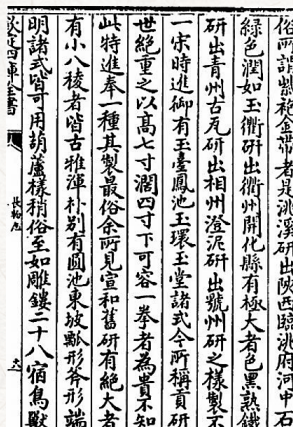 俗所謂紫袍金帶者是洮溪研出陝西臨洮府河中石
綠色潤如玉衢研出衢州開化縣有極大者色黑熟鐵
研出青州古瓦研出相州澄泥研出虢州研之樣製不
一宋時進御有玉臺鳳池玉環玉堂諸式今所稱貢研
世絕重之以髙七寸濶四寸下可容一拳者為貴不知
此特進奉一種其製最俗余所見宣和舊研有絕大者
有小八稜者皆古雅渾朴别有圓池東坡瓢形斧形端
明諸式皆可用葫蘆樣稍俗至如雕鏤二十八宿鳥獸
長物志